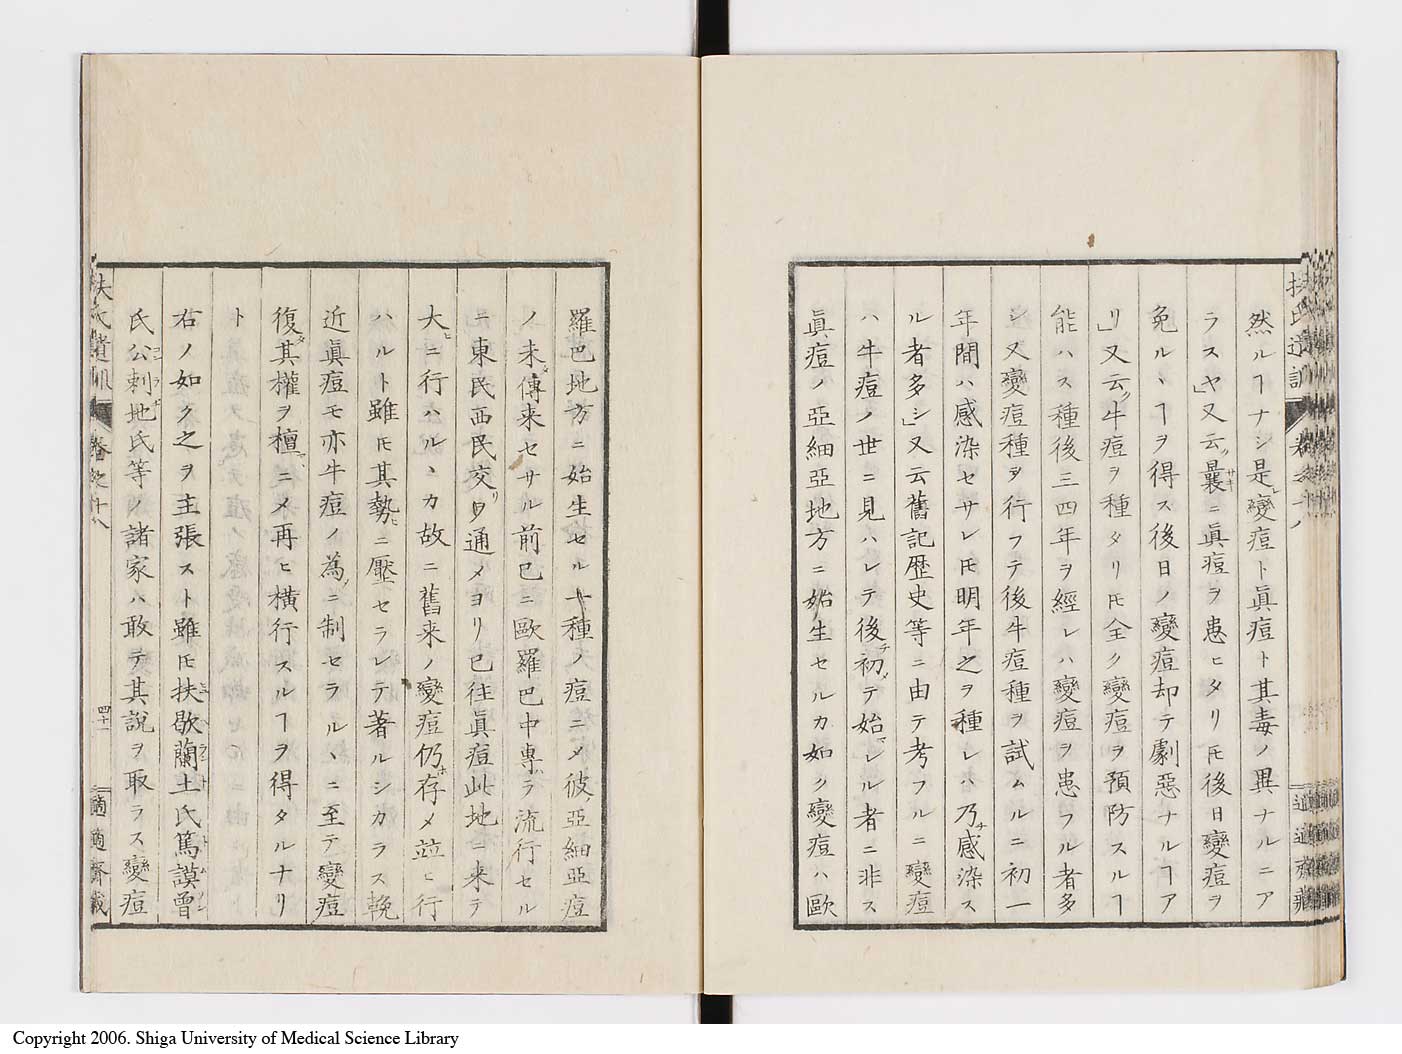 然ルヿナシ是レ變痘ト眞痘ト其毒ノ異ナルニア
ラスヤ」又云ク曩ニ眞痘ヲ患ヒタリㇳモ後日變痘ヲ
免ルヽヿヲ得ス後日ノ變痘却テ劇惡ナルヿア
リ」又云ク牛痘ヲ種タリㇳモ全ク變痘ヲ預防スルヿ
能ハス種後三四年ヲ經レハ變痘ヲ患フル者多
シ又變痘種ヲ行フテ後牛痘種ヲ試ムルニ初一
年間ハ感染セサレㇳモ明年之ヲ種レハ乃チ感染ス
ル者多シ」又云舊記歴史等ニ由テ考フルニ變痘
ハ牛痘ノ世ニ見ハレテ後チ初メテ始マレル者ニ非ス
眞痘ノ亞細亞地方ニ始生セルカ如ク變痘ハ歐
羅巴地方ニ始生セル一種ノ痘ニメ彼ノ亞細亞痘
ノ未タ傳来セサル前已ニ歐羅巴中專ラ流行セル
ニ東民西民交リヲ通メヨリ已往眞痘此地ニ来テ
大ヒニ行ハルヽカ故ニ舊来ノ變痘仍ホ存メ竝ヒ行
ハルト雖ㇳモ其勢ヒニ壓セラレテ著ルシカラス輓
近眞痘モ亦牛痘ノ為メニ制セラルヽニ至テ變痘
復タ其權ヲ檀ニメ再ヒ横行スルヿヲ得タルナリ
ト
右ノ如ク之ヲ主張スト雖ㇳモ扶歇蘭土氏篤謨曾
氏公刺地氏等ノ諸家ハ敢テ其説ヲ取ラス變痘
扶氏遺訓
卷之十八
四十一
適適齋藏
Copyright 2006. Shiga University of Medical Science Library